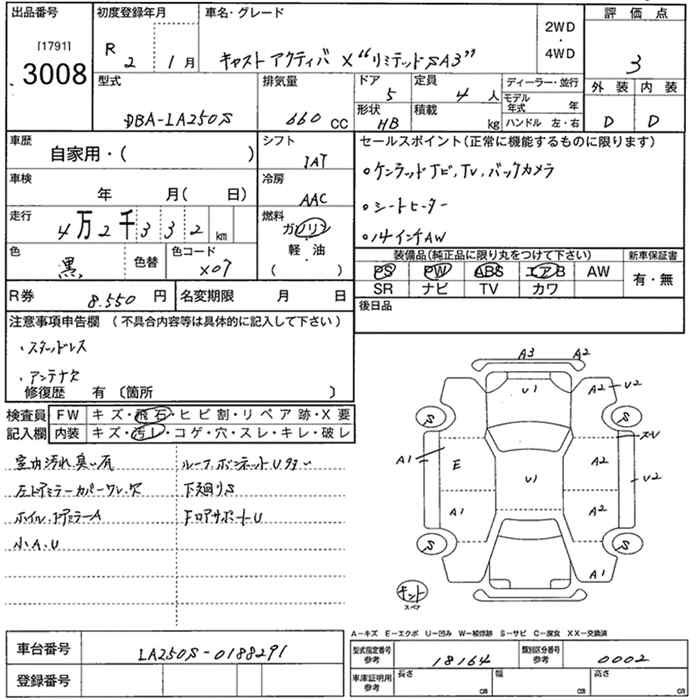 出品番号 初度登録年月 車名・グレード 2WD ・ 4WD 評価点
[1791] 3008 R 2 1月 キャスト アクティバ X "リミテッド SA3" 3
型式 排気量 ドア 5 定員 4人 ディーラー・並行 外装 内装
DBA-LA250S 660 CC 形状 HB 積載 kg モデル年式 年 ハンドル 左・右 D D
車歴 自家用・( ) シフト IAT セールスポイント(正常に機能するものに限ります)
車検 年 月( 日) 冷房 AAC
走行 4万2千332km 燃料 ガソリン 軽・油 ( )
色 黒 色替 色コード X07
R券 8.550円 名変期限 月 日
○ケンウッドナビ,TV,バックカメラ
○シートヒーター
○14インチAW
装備品(純正品に限り丸をつけて下さい) 新車保証書
PS PW ABS エアB AW 有・無
SR ナビ TV カワ
後日品
注意事項申告欄(不具合内容等は具体的に記入して下さい)
・スタッドレス
・アンテナ欠
修復歴 有〔箇所 〕
検査員 FW キズ・飛石・ヒビ割・リペア跡・X要
記入欄 内装 キズ・汚レ・コゲ・穴・スレ・キレ・破レ
室内汚れ臭い有 ルーフ,ボンネットU
左ドアミラーカバーワレ・欠 下廻りS
ホイル,ドアミラーA Fロアサポート U
小A.U
A3 A2
U1 A2 U2
S S
A1 E U1 A2 U2
A1 A2
S S
A1
スペア
A-キズ E-エクボ U-凹み W-補修跡 S-サビ C-腐食 XX-交換済
車台番号 LA250S-0188291
登録番号
型式指定番号 参考 18164 類別区分番号 参考 0002
車庫証明用 参考 長さ cm 幅 cm 高さ cm